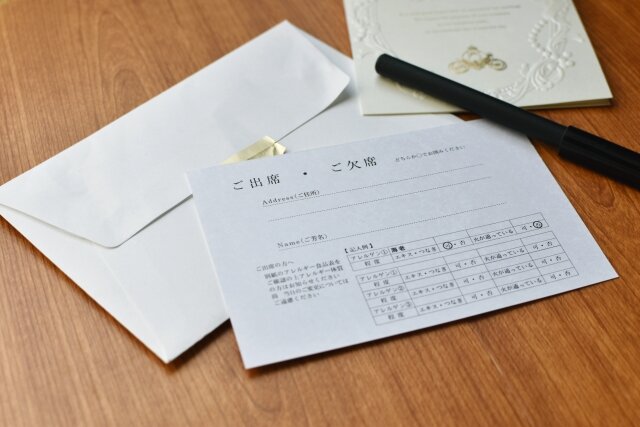 ご出席 ・ ご欠席 どちらか○でお囲みください
Address(ご住所)
Name(ご芳名)
ご出席の方へ
別紙のアレルギー食品表を
ご確認の上アレルギー体質
の方はお知らせください
尚 当日のご変応については
ご遠慮ください
【記入例】
アレルゲン① 海老
程度 エキス・つなぎ 可・否 火が通っている 可・否
アレルゲン①
程度 エキス・つなぎ 可・否 火が通っている 可・否
アレルゲン②
程度 エキス・つなぎ 可・否 火が通っている 可・否
アレルゲン③
程度 エキス・つなぎ 可・否 火が通っている 可・否